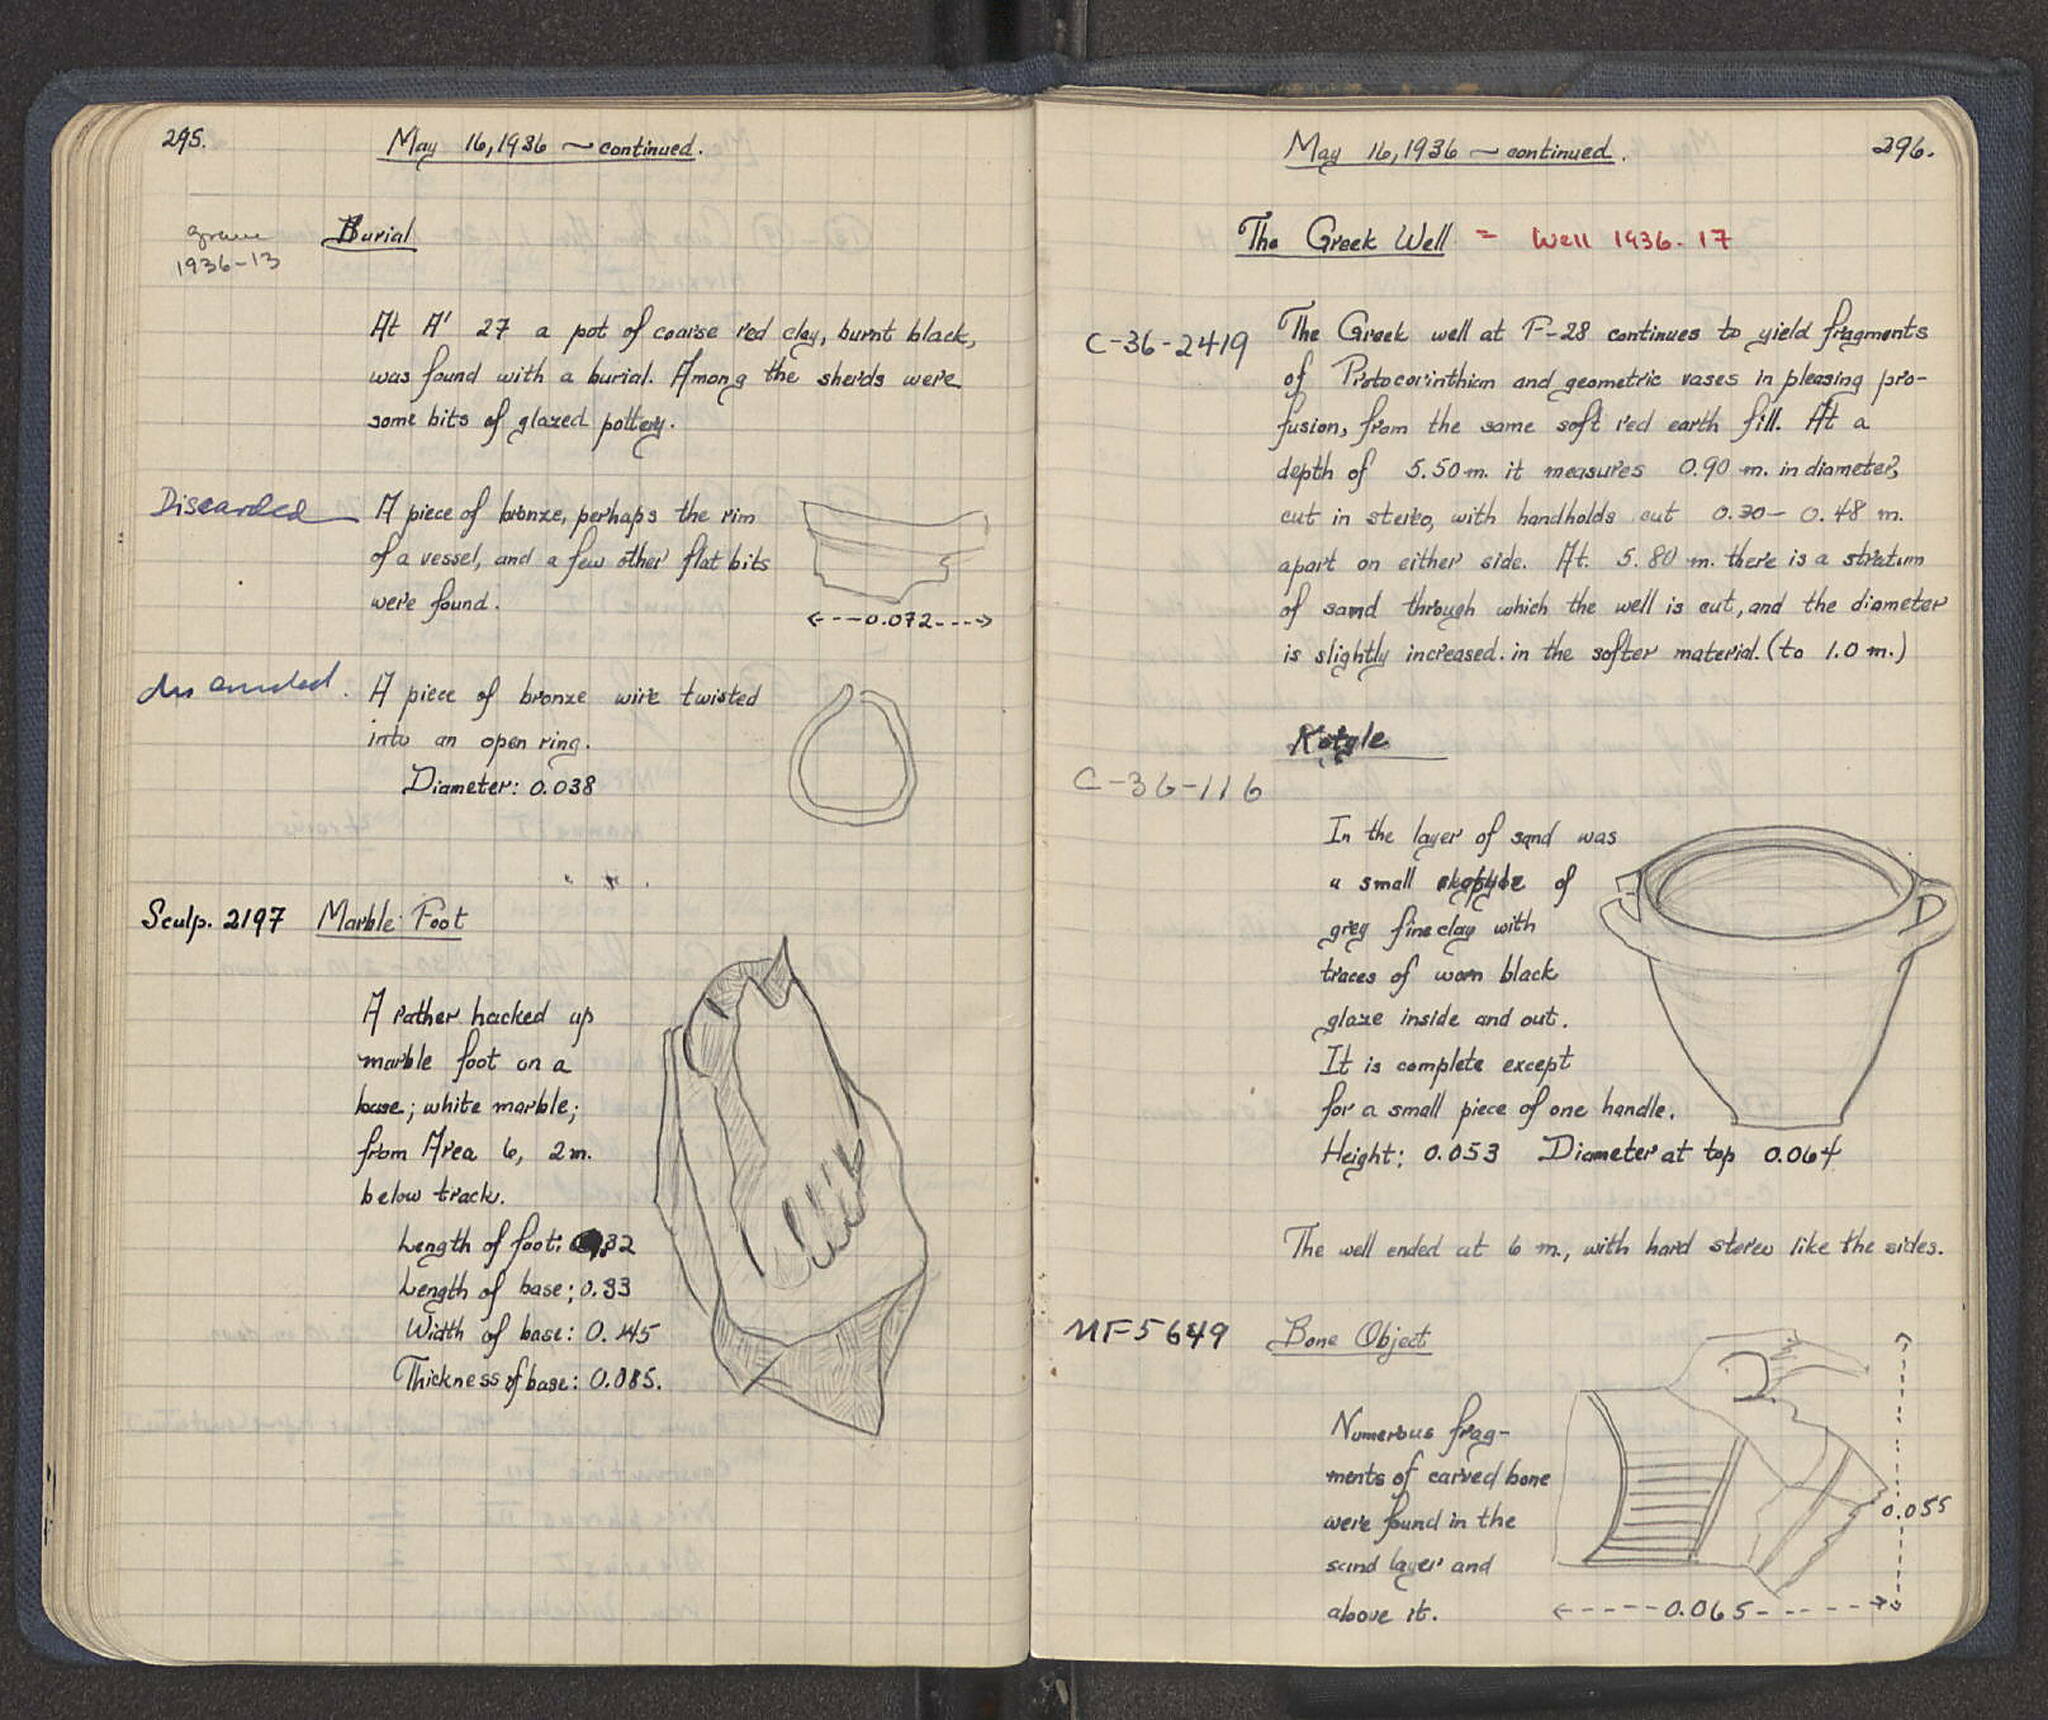 295.
May 16, 1936 ~ continued.
grave
1936-13
Burial
At A' 27 a pot of coarse red clay, burnt black,
was found with a burial. Among the sherds were
some bits of glazed pottery.
Discarded
A piece of bronze, perhaps the rim
of a vessel, and a few other flat bits
were found.
<---0.072---->
discarded.
A piece of bronze wire twisted
into an open ring.
Diameter: 0.038
Sculp. 2197
Marble Foot
A rather hacked up
marble foot on a
base; white marble;
from Area 6, 2m.
below track.
Length of foot: 0.32
Length of base; 0.33
Width of base: 0.145
Thickness of base: 0.085.
May 16, 1936 ~ continued.
296.
The Greek Well = Well 1936-17
C-36-2419
The Greek well at F-28 continues to yield fragments
of Protocorinthian and geometric vases in pleasing pro-
fusion, from the same soft red earth fill. At a
depth of 5.50 m. it measures 0.90 m. in diameter,
cut in stereo, with handholds cut 0.30 - 0.48 m.
apart on either side. At. 5.80 m. there is a stratum
of sand through which the well is cut, and the diameter
is slightly increased. in the softer material. (to 1.0 m.)
Kotyle
C-36-116
In the layer of sand was
a small of
grey fine clay with
traces of worn black
glaze inside and out.
It is complete except
for a small piece of one handle.
Height: 0.053 Diameter at top 0.064
The well ended at 6 m., with hard stereo like the sides.
MF 5649
Bone Object
Numerous frag-
ments of carved bone
were found in the
sand layer and
above it.
0.055
<-----0.065------>